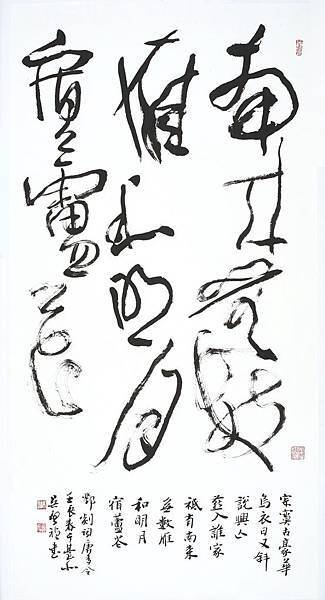 南來無數
雁和明月
宿蘆花
寂寞古豪華
烏衣日又斜
說興亡
燕入誰家
祇有南來
無數雁
和明月
宿蘆花
鄧剡詞唐多令